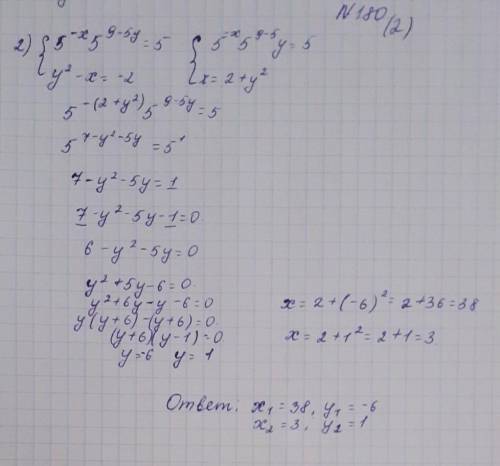 N180 (2)
2) { 5^{-x} 5^{9-5y} = 5    { 5^{-x} 5^{9-5}y = 5
y² - x = -2    x = 2 + y²
5^{-(2+y²)} 5^{9-5y} = 5
5^{7-y²-5y} = 5¹
7 - y² - 5y = 1
7 - y² - 5y - 1 = 0
6 - y² - 5y = 0
y² + 5y - 6 = 0
y² + 6y - y - 6 = 0
y(y+6) - (y+6) = 0
(y+6)(y-1) = 0
y = -6   y = 1
x = 2 + (-6)² = 2 + 36 = 38
x = 2 + 1² = 2 + 1 = 3
Ответ: x₁ = 38, y₁ = -6
x₂ = 3, y₂ = 1